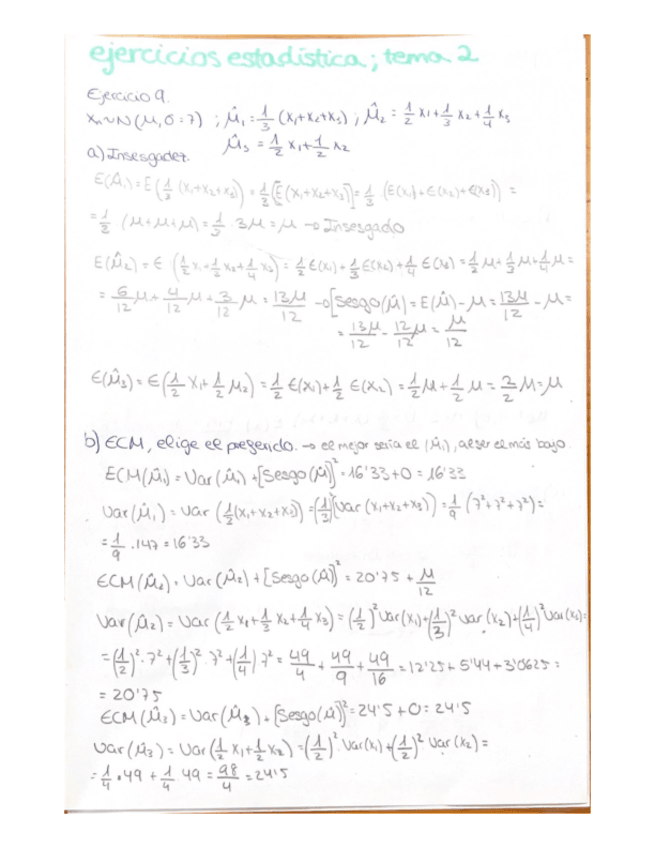 ejercicios estadística; tema 2
Ejercicio 9.
Xn ~ N(μ, σ=7) ; μ̂₁ = 1/3 (X₁+X₂+X₃) ; μ̂₂ = 1/2 X₁ + 1/3 X₂ + 1/4 X₃
μ̂₃ = 1/2 X₁ + 1/2 X₂
a) Insesgadez.
E(μ̂₁) = E(1/3 (X₁+X₂+X₃)) = 1/3 [E(X₁+X₂+X₃)] = 1/3 · (E(X₁)+E(X₂)+E(X₃)) =
= 1/3 (μ+μ+μ) = 1/3 · 3μ = μ → Insesgado
E(μ̂₂) = E (1/2 X₁ + 1/3 X₂ + 1/4 X₃) = 1/2 E(X₁) + 1/3 E(X₂) + 1/4 E(X₃) = 1/2 μ + 1/3 μ + 1/4 μ =
= 6/12 μ + 4/12 μ + 3/12 μ = 13μ/12 → [Sesgo(μ̂) = E(μ̂) - μ = 13μ/12 - μ =
= 13μ/12 - 12μ/12 = μ/12
E(μ̂₃) = E(1/2 X₁ + 1/2 μ₂) = 1/2 E(X₁) + 1/2 E(X₂) = 1/2 μ + 1/2 μ = 2/2 μ = μ
b) ECM, elige el preferido. → el mejor sería el (μ̂₁), al ser el más bajo.
ECM(μ̂₁) = Var(μ̂₁) + [Sesgo(μ̂)]² = 16'33 + 0 = 16'33
Var(μ̂₁) = Var (1/3 (X₁+X₂+X₃)) = (1/3)² [Var (X₁+X₂+X₃)] = 1/9 (7²+7²+7²) =
= 1/9 · 147 = 16'33
ECM(μ̂₂) = Var(μ̂₂) + [Sesgo(μ̂)]² = 20'75 + μ/12
Var(μ̂₂) = Var (1/2 X₁ + 1/3 X₂ + 1/4 X₃) = (1/2)² Var(X₁) + (1/3)² Var(X₂) + (1/4)² Var(X₃) =
= (1/2)² · 7² + (1/3)² · 7² + (1/4) 7² = 49/4 + 49/9 + 49/16 = 12'25 + 5'44 + 3'0625 =
= 20'75
ECM(μ̂₃) = Var(μ̂₃) + [Sesgo(μ̂)]² = 24'5 + 0 = 24'5
Var(μ̂₃) = Var(1/2 X₁ + 1/2 X₂) = (1/2)² · Var(X₁) + (1/2)² Var(X₂) =
= 1/4 · 49 + 1/4 49 = 98/4 = 24'5